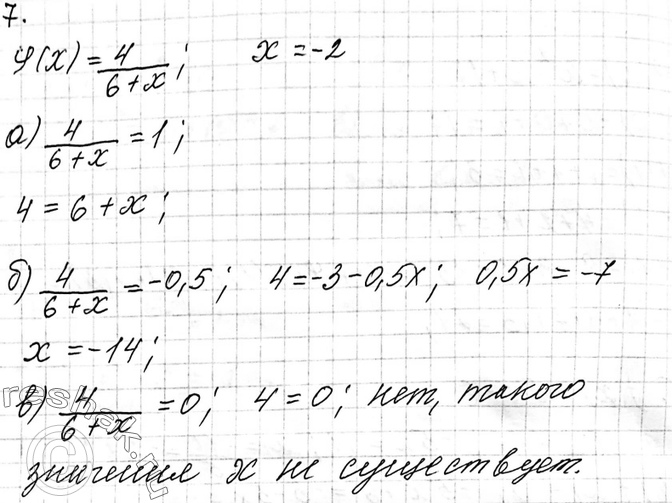 7.
φ(x) = 4/(6+x); x = -2
а) 4/(6+x) = 1;
4 = 6 + x;
б) 4/(6+x) = -0,5; 4 = -3 - 0,5x; 0,5x = -7
x = -14;
в) 4/(6+x) = 0; 4 = 0; нет, такого
значения x не существует.
©reshak.ru